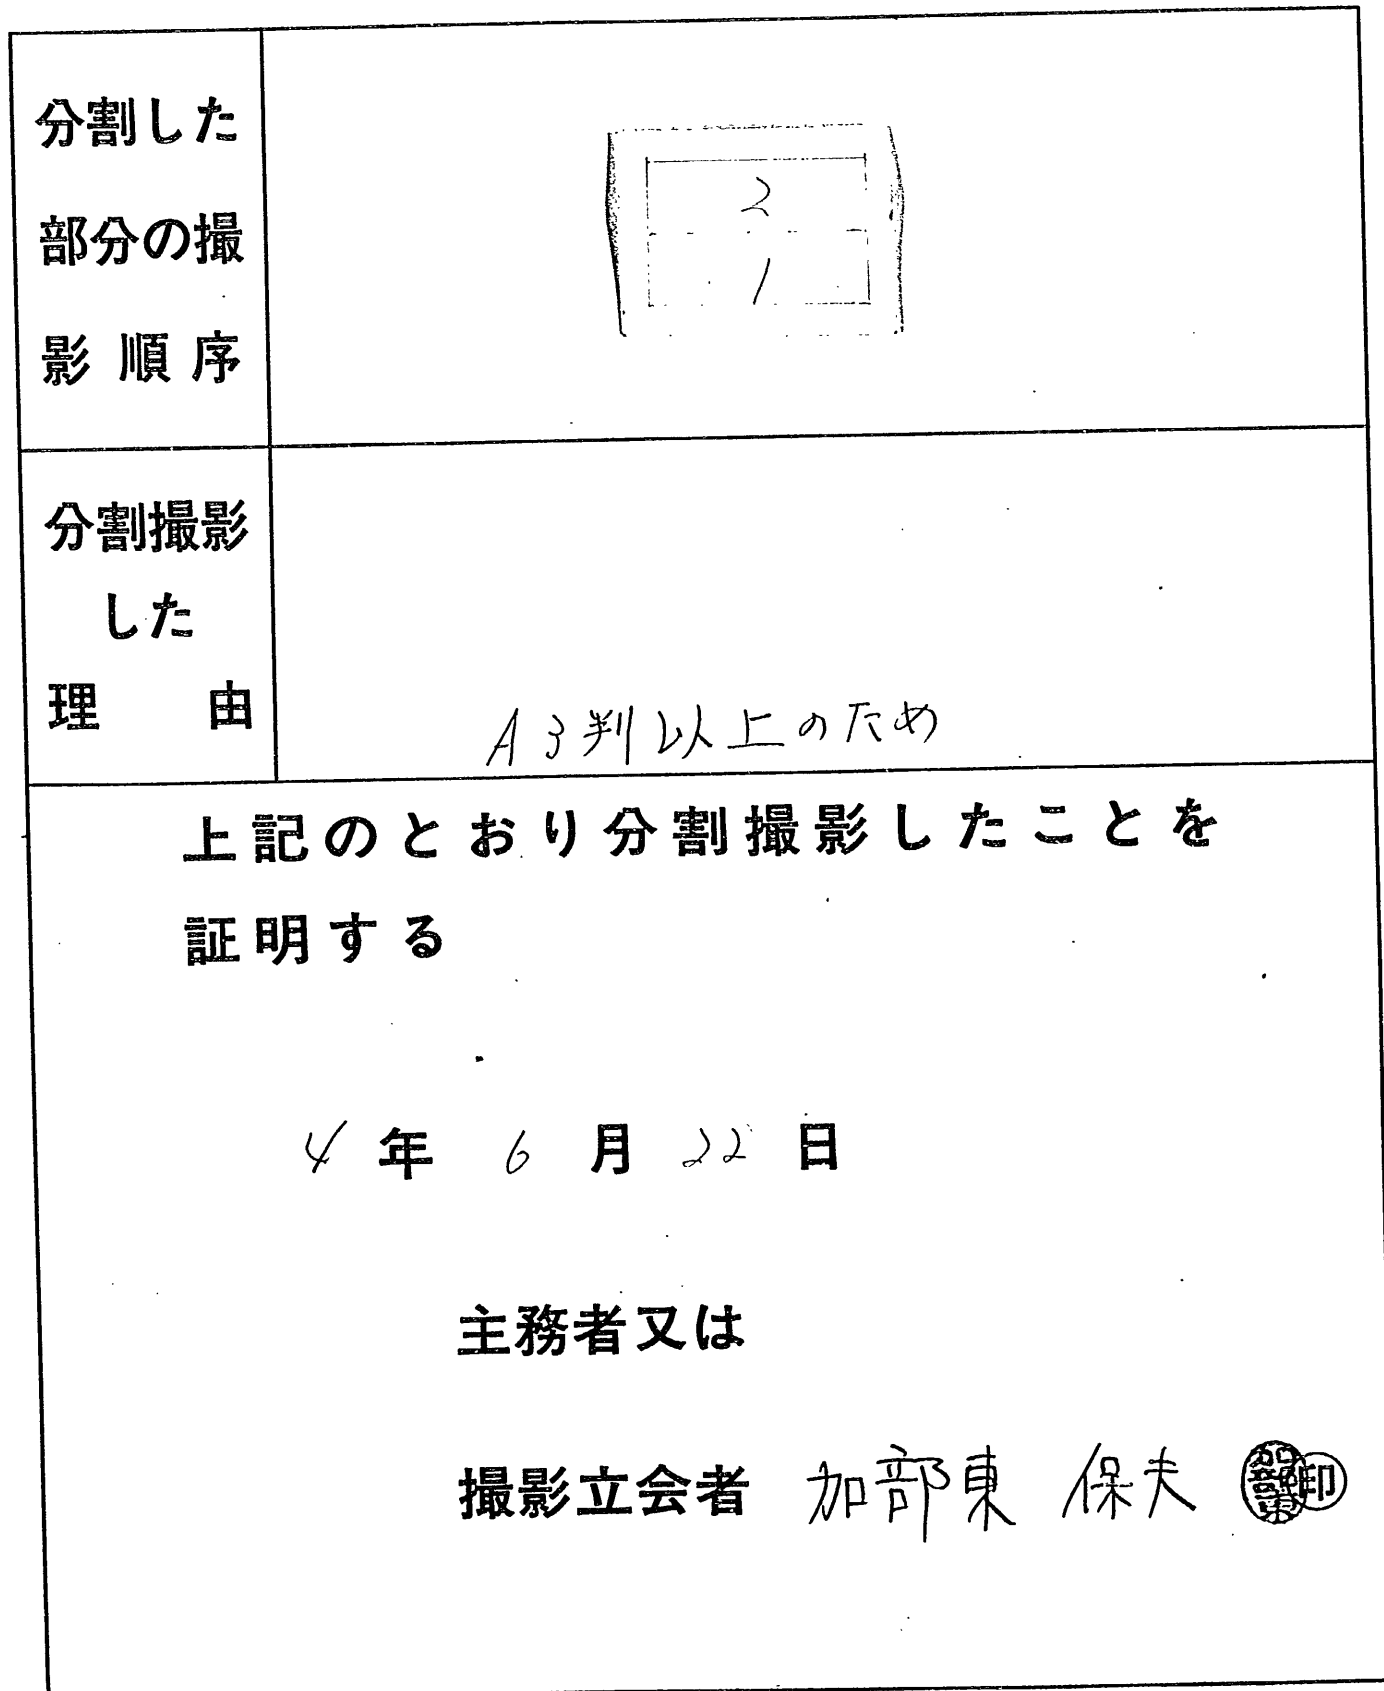 分割した
部分の撮
影順序
2
1
分割撮影
した
理由
A3判以上のため
上記のとおり分割撮影したことを
証明する
4年6月22日
主務者又は
撮影立会者 加部東 保夫 加部東 印